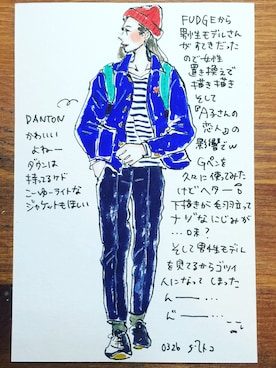 FUDGEから
男性モデルさん
がすてきだった
ので女性
置き換えで
描き描き
そして
『Aさんの
恋人』の
影響でw
Gペンを
久々に使ってみた
けどヘター
下描きが毛羽立って
ナゾなにじみが
…味？
そして男性モデル
を見てるからゴツイ
人になってしまった
んー…
DANTON
かわいい
よねー
ダウンは
持ってるケド
こーゆーライトな
ジャケットもほしい
0326